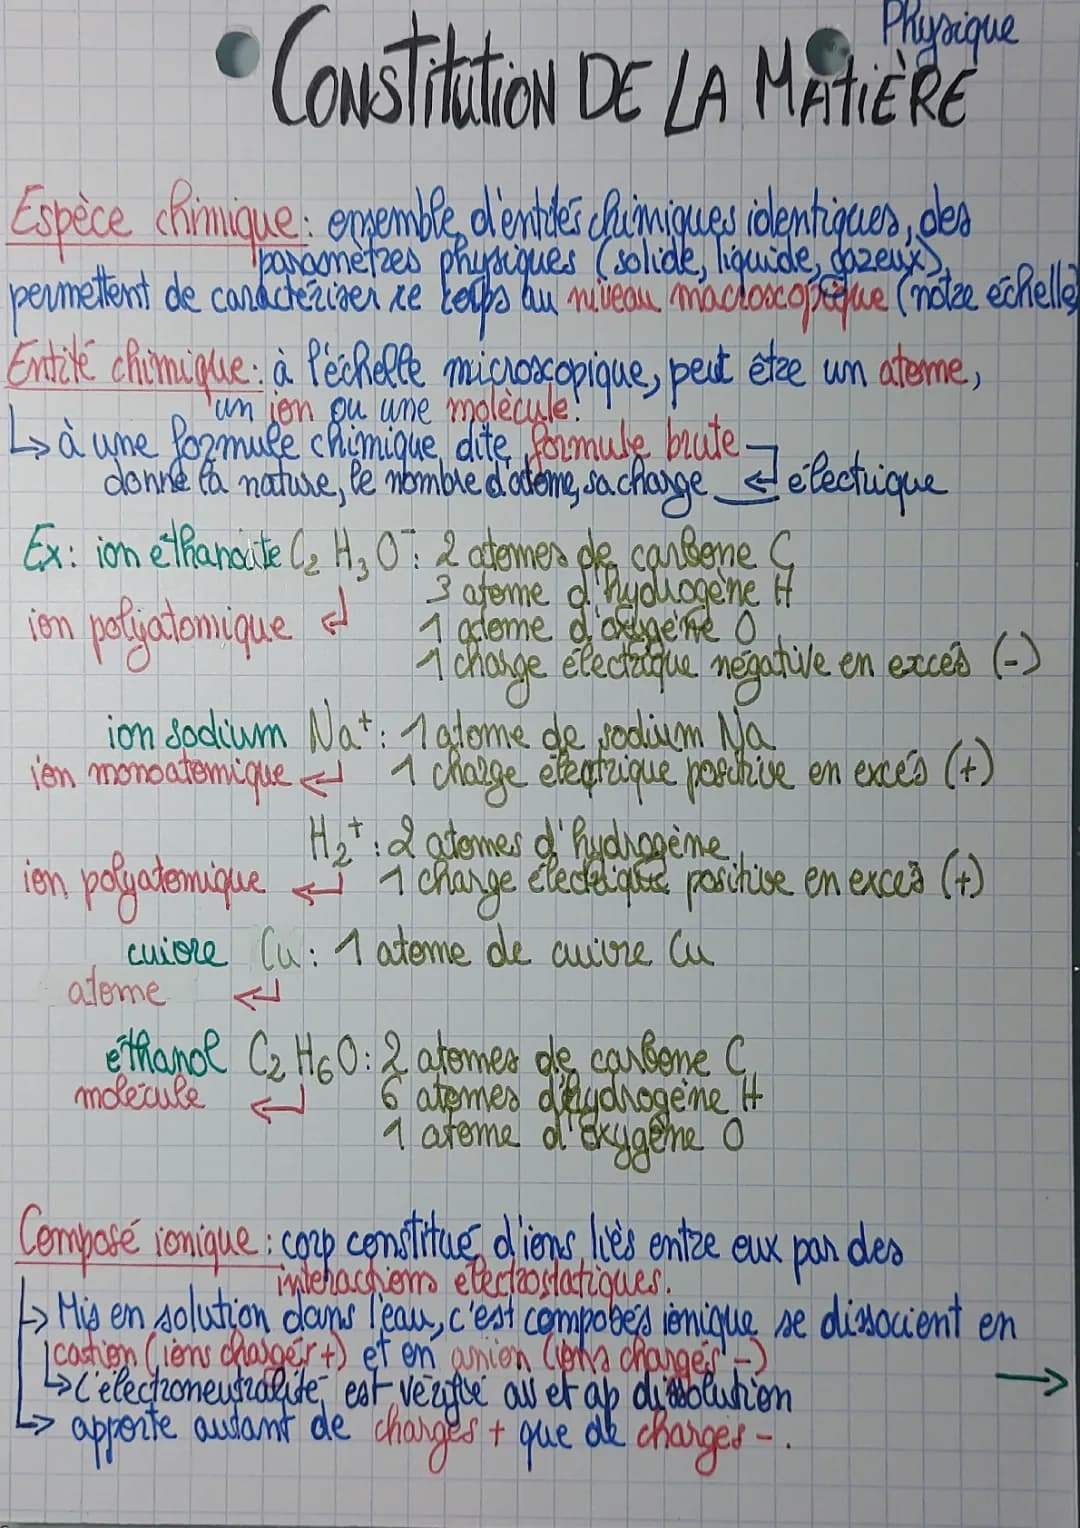 Physique
CONSTITUTION DE LA MATIÈRE
Espèce chimique : ensemble d'entités chimiques identiques, des
paramètres physiques (solide, liquide, gazeux)
permettent de caractériser ce corps au niveau macroscopique (notre échelle)
Entité chimique : à l'échelle microscopique, peut être un atome,
un ion ou une molécule.
↳ à une formule chimique dite formule brute
donne la nature, le nombre d'atome, sa charge ↲ électrique
Ex : ion éthanoate C₂ H₃ O⁻ : 2 atomes de carbone C
3 atome d'hydrogène H
ion polyatomique ↲ 1 atome d'oxygène O
1 charge électrique négative en excès (-)
ion sodium Na⁺ : 1 atome de sodium Na
ion monoatomique ↲ 1 charge électrique positive en excès (+)
H₂⁺ : 2 atomes d'hydrogène
ion polyatomique ↲ 1 charge électrique positive en excès (+)
cuivre Cu : 1 atome de cuivre Cu
atome ↲
éthanol C₂ H₆ O : 2 atomes de carbone C
molécule ↲ 6 atomes d'hydrogène H
1 atome d'oxygène O
Composé ionique : corp constitué d'ions liés entre eux par des
interactions électrostatiques.
↳ Mis en solution dans l'eau, c'est composés ionique se dissocient en
cation (ions chargés +) et en anion (ions chargés -)
↳ L'électroneutralité est vérifié av et ap dissolution →
↳ apporte autant de charges + que de charges -.